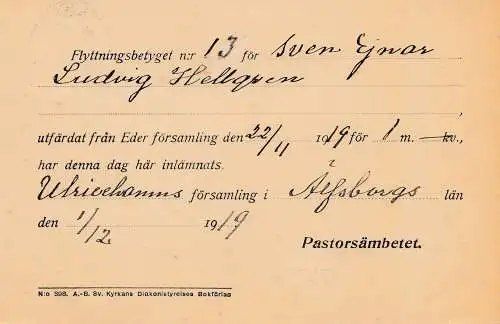 Flyttningsbetyget n:r 13 för Sven Ejnar
Ludvig Hellgren
utfärdat från Eder församling den 22/11 1919 för 1 m. kv.,
har denna dag här inlämnats.
Ulricehamns församling i Älfsborgs län
den 1/12. 1919
Pastorsämbetet.
N:o 598. A.-B. Sv. Kyrkans Diakonistyrelses Bokförlag